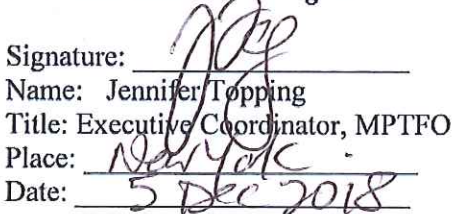 Signature:
Name: Jennifer Topping
Title: Executive Coordinator, MPTFO
Place: New York
Date: 5 Dec 2018